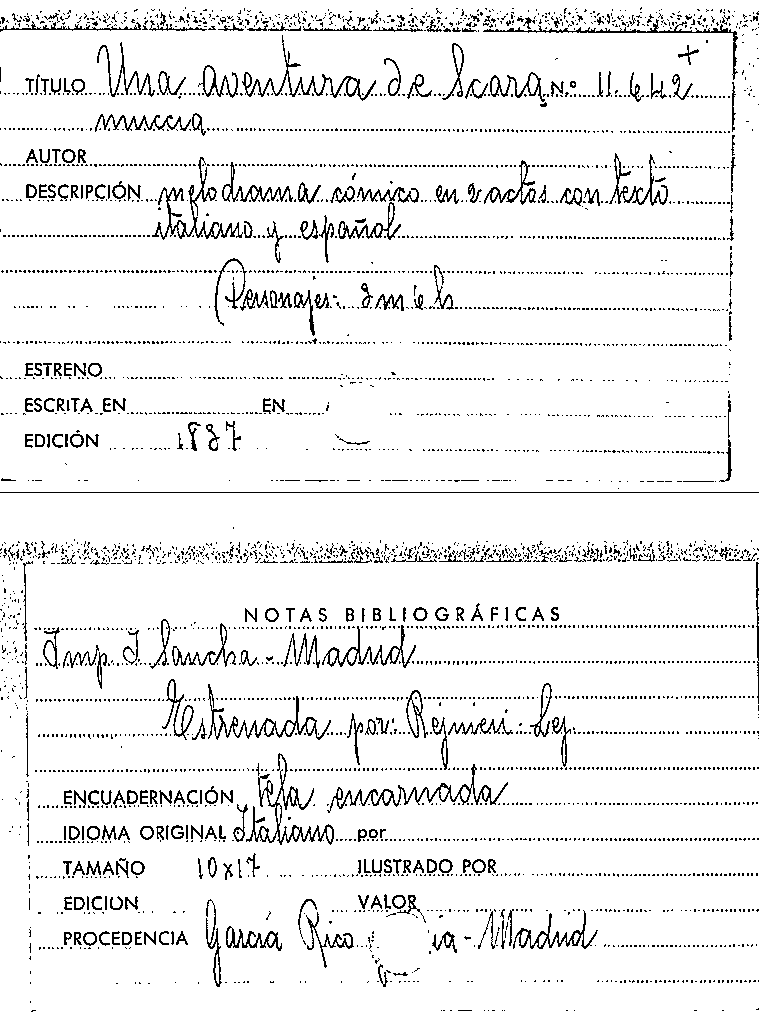 TÍTULO Una aventura de Scara N.º 11.642 +
muccia
AUTOR
DESCRIPCIÓN melodrama cómico en 2 actos con texto
italiano y español
Personajes: 2m 6h
ESTRENO
ESCRITA EN EN
EDICIÓN 1837
NOTAS BIBLIOGRÁFICAS
Imp I Sancha - Madrid
Estrenada por:
ENCUADERNACIÓN tela encarnada
IDIOMA ORIGINAL Italiano por
TAMAÑO 10x17 ILUSTRADO POR
EDICION VALOR
PROCEDENCIA García Rico ia - Madrid